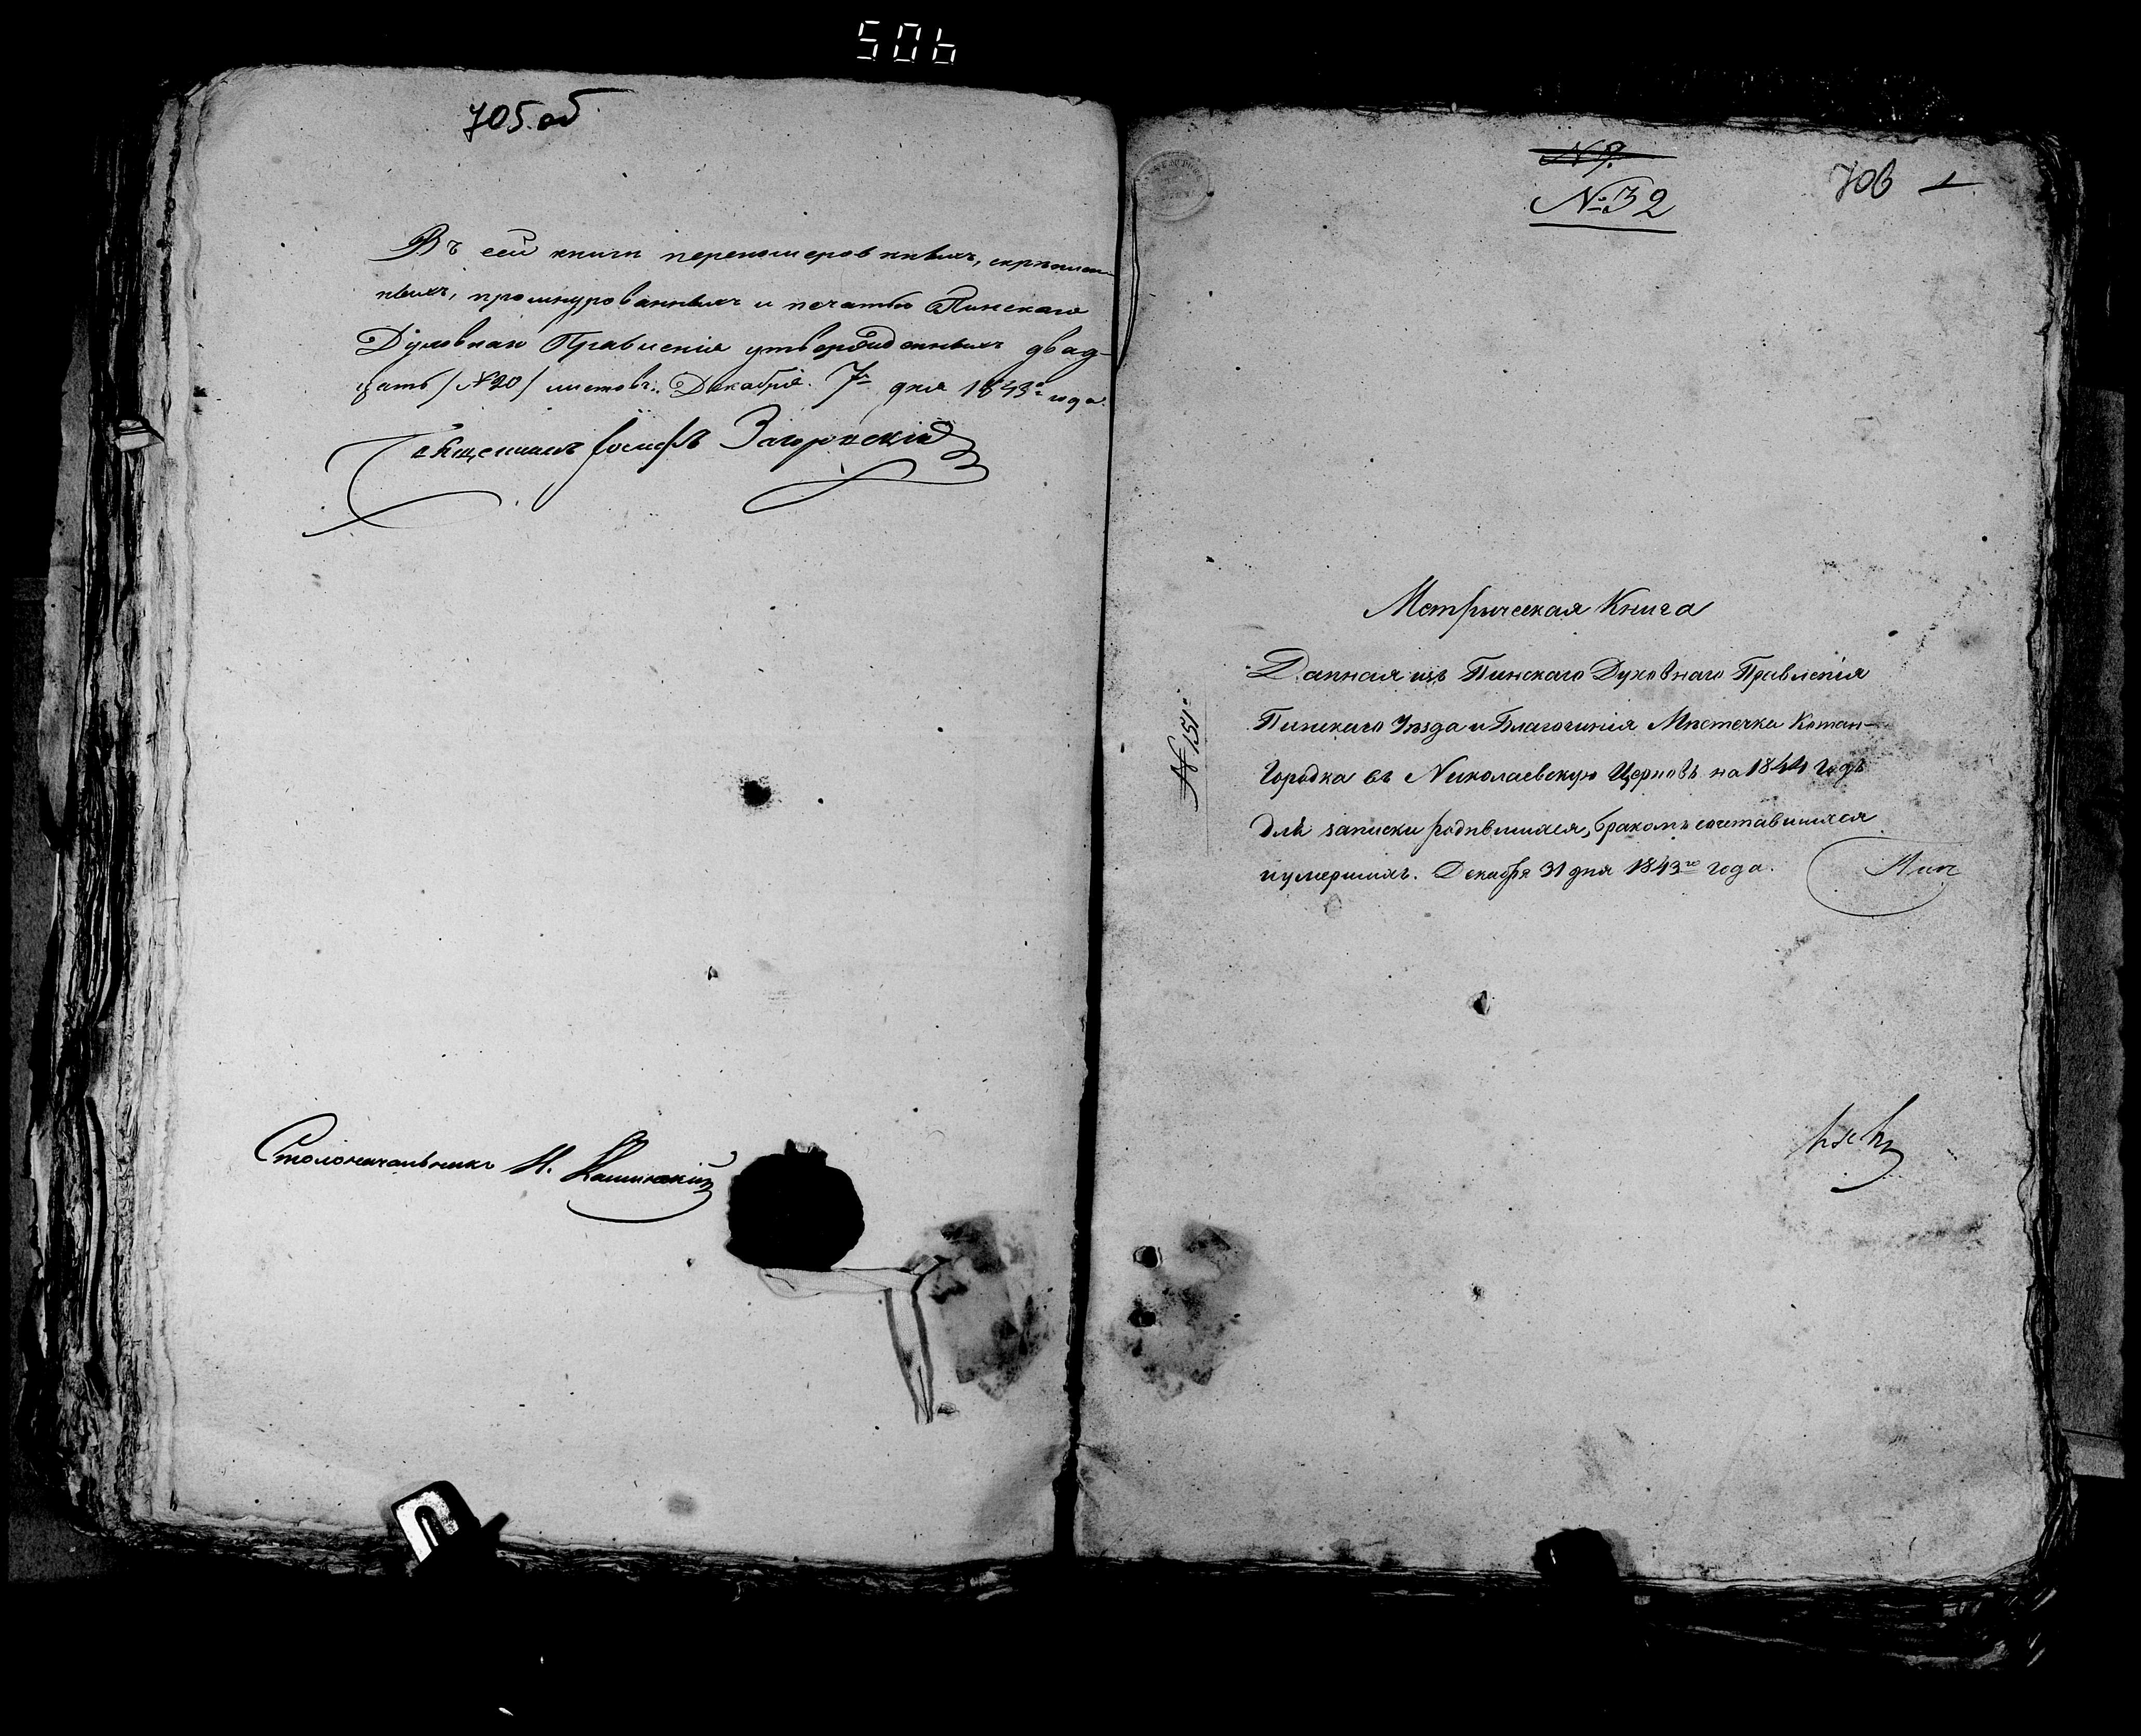 506
705.об
Въ сей книги переномеровнныхъ, скрѣплен-
ныхъ, прошнурованныхъ и печатью Пинскаго
Духовнаго Правленія утвержденныхъ двад-
цать /№20/ листовъ. Декабря 7- дня 1843го года.
Священникъ Іосифъ Загоровскій
Столоначальникъ И.
№ 9.
№ 32
706 1
№ 151
Метрическая Книга
Данная изъ Пинскаго Духовнаго Правленія
Пинскаго Уѣзда и Благочинія Мѣстечка Кожан-
Городка въ Николаевскую Церковь на 1844 годъ
для записки родившихся, бракомъ сочетавшихся
иумершихъ. Декабря 31 дня 1843го года.